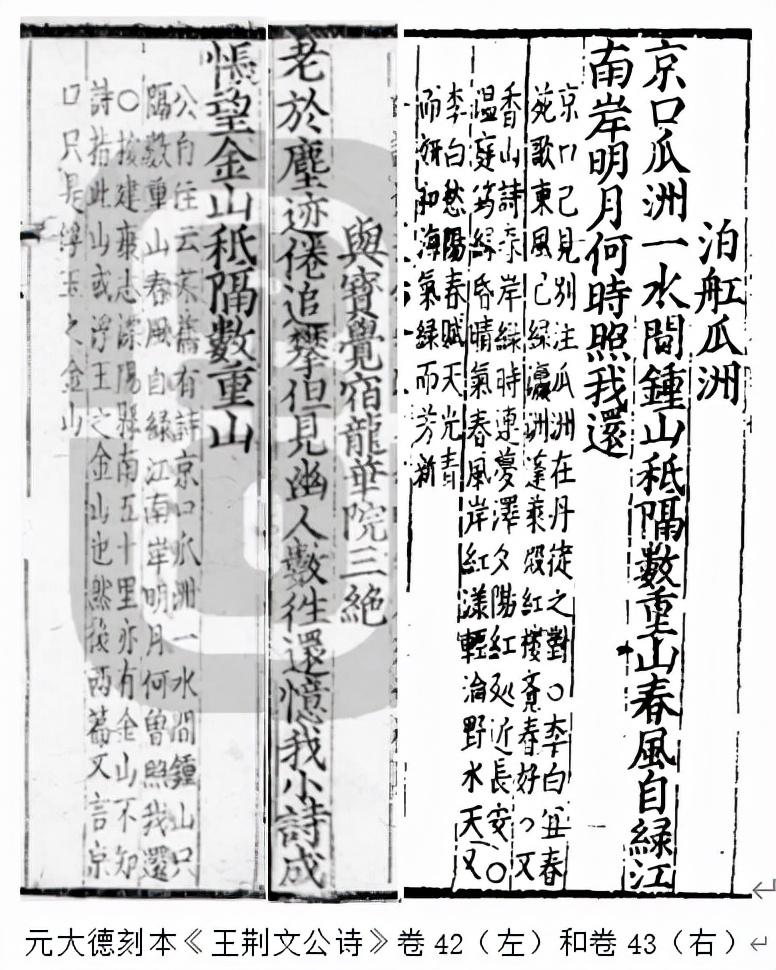 泊舡瓜洲
京口瓜洲一水間鍾山秖隔數重山春風自緑江
南岸明月何時照我還
京口已見別注瓜洲在丹徒之對○李白宜春
苑歌東風已緑瀛洲蓬萊殿紅樓覺春好○又
香山詩春岸緑時連夢澤夕陽紅処近長安○
温庭筠緑昏晴氣春風岸紅漾輕淪野水天又
李白愁陽春賦天光青
而妍和海氣緑而芳新
與寶覺宿龍華院三絶
老於塵迹倦追攀但見幽人數徃還憶我小詩成
悵望金山秖隔數重山
公自注云某舊有詩京口瓜洲一水間鍾山只
隔數重山春風自緑江南岸明月何曾照我還
○按建康志溧陽縣南五十里亦有金山不知
詩指此山或浮玉之金山也然後两篇又言京
口只是浮玉之金山
元大德刻本《王荆文公诗》卷42（左）和卷43（右）